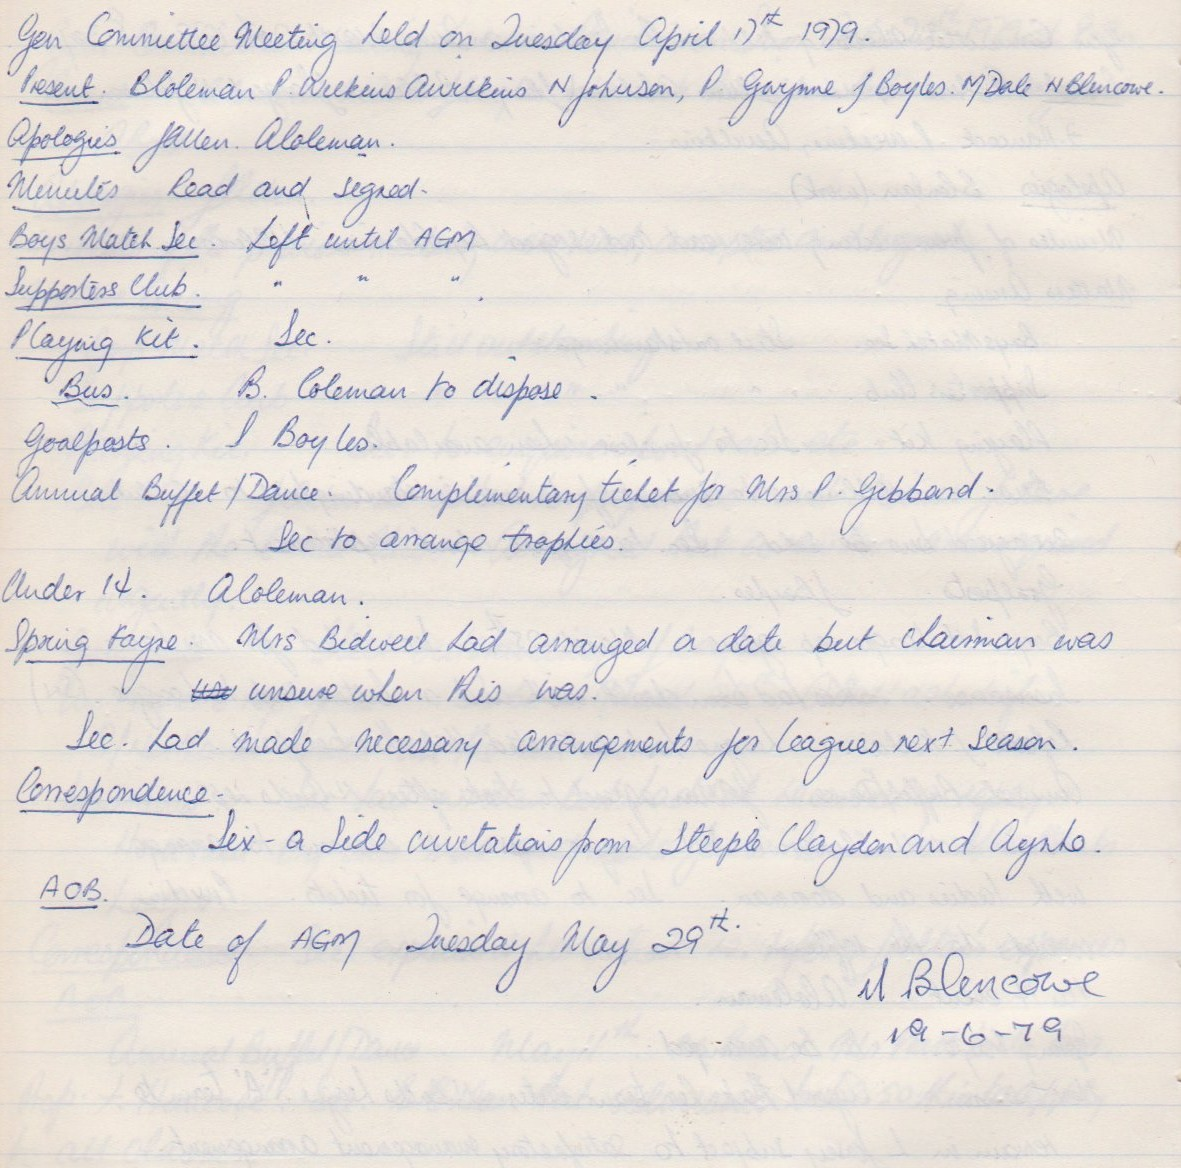 Gen Committee Meeting held on Tuesday April 17th 1979.
Present. B Coleman P. Wilkins A Wilkins N Johnson, P. Gwynne J Boyles. M Dale N Blencowe.
Apologies J Allen. A Coleman.
Minutes Read and signed.
Boys Match Sec. Left until AGM
Supporters Club. " " ".
Playing Kit. Sec.
Bus. B. Coleman to dispose.
Goalposts. J Boyles.
Annual Buffet/Dance. Complimentary ticket for Mrs P. Gibbard.
Sec to arrange trophies.
Under 14. A Coleman.
Spring Fayre. Mrs Bidwell had arranged a date but chairman was
unsure when this was.
Sec. had made necessary arrangements for leagues next season.
Correspondence.
Six-a side invitations from Steeple Claydon and Aynho.
AOB.
Date of AGM Tuesday May 29th.
N Blencowe
19-6-79